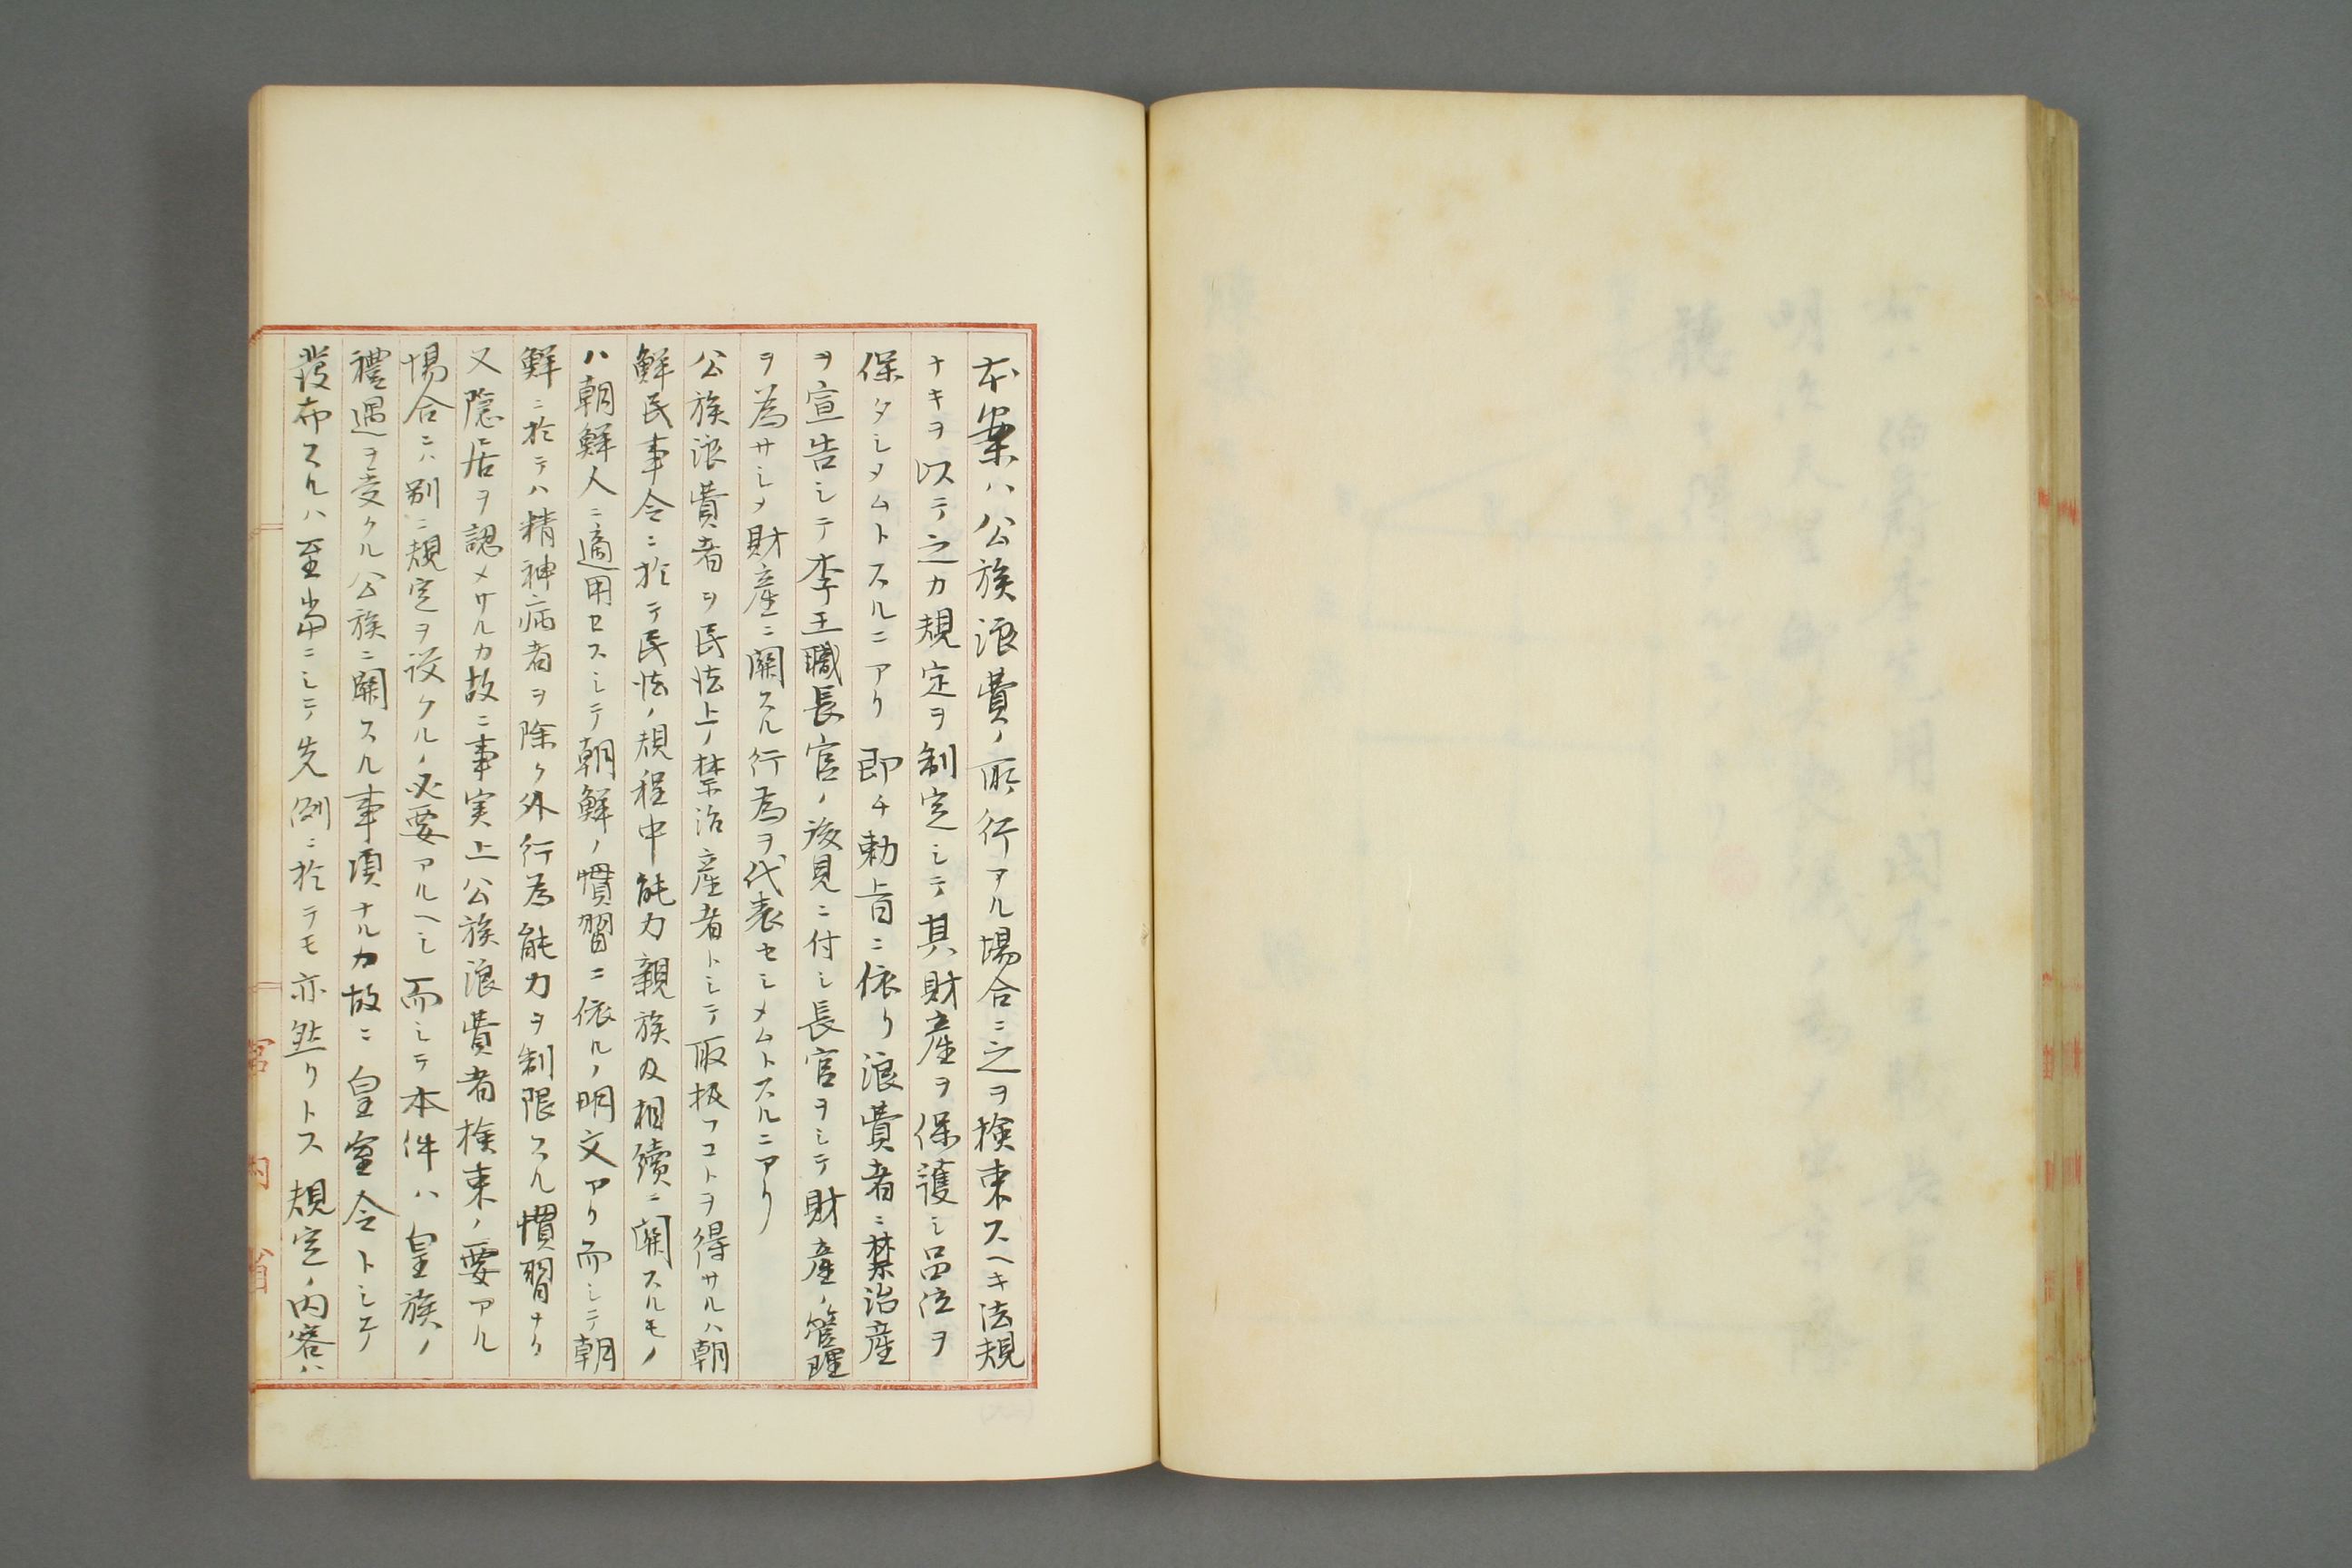 本案ハ公族浪費ノ所行アル場合ニ之ヲ検束スヘキ法規
ナキヲ以テ之カ規定ヲ制定シテ其財産ヲ保護シ品位ヲ
保タシメムトスルニアリ 即チ勅旨ニ依リ浪費者ニ禁治産
ヲ宣告シテ李王職長官ノ後見ニ付シ長官ヲシテ財産ノ管理
ヲ為サシメ財産ニ關スル行為ヲ代表セシメムトスルニアリ
公族浪費者ヲ民法上ノ禁治産者トシテ取扱フコトヲ得サルハ朝
鮮民事令ニ於テ民法ノ規程中能力親族及相續ニ關スルモノ
ハ朝鮮人ニ適用セスシテ朝鮮ノ慣習ニ依ルノ明文アリ而シテ朝
鮮ニ於テハ精神病者ヲ除ク外行為能力ヲ制限スル慣習ナク
又隠居ヲ認メサルカ故ニ事実上公族浪費者検束ノ要アル
場合ニハ別ニ規定ヲ設クルノ必要アルヘシ 而シテ本件ハ皇族ノ
禮遇ヲ受クル公族ニ關スル事項ナルカ故ニ皇室令トシテ
發布スルハ至當ニシテ先例ニ於テモ亦然リトス 規定ノ内容ハ
宮内省